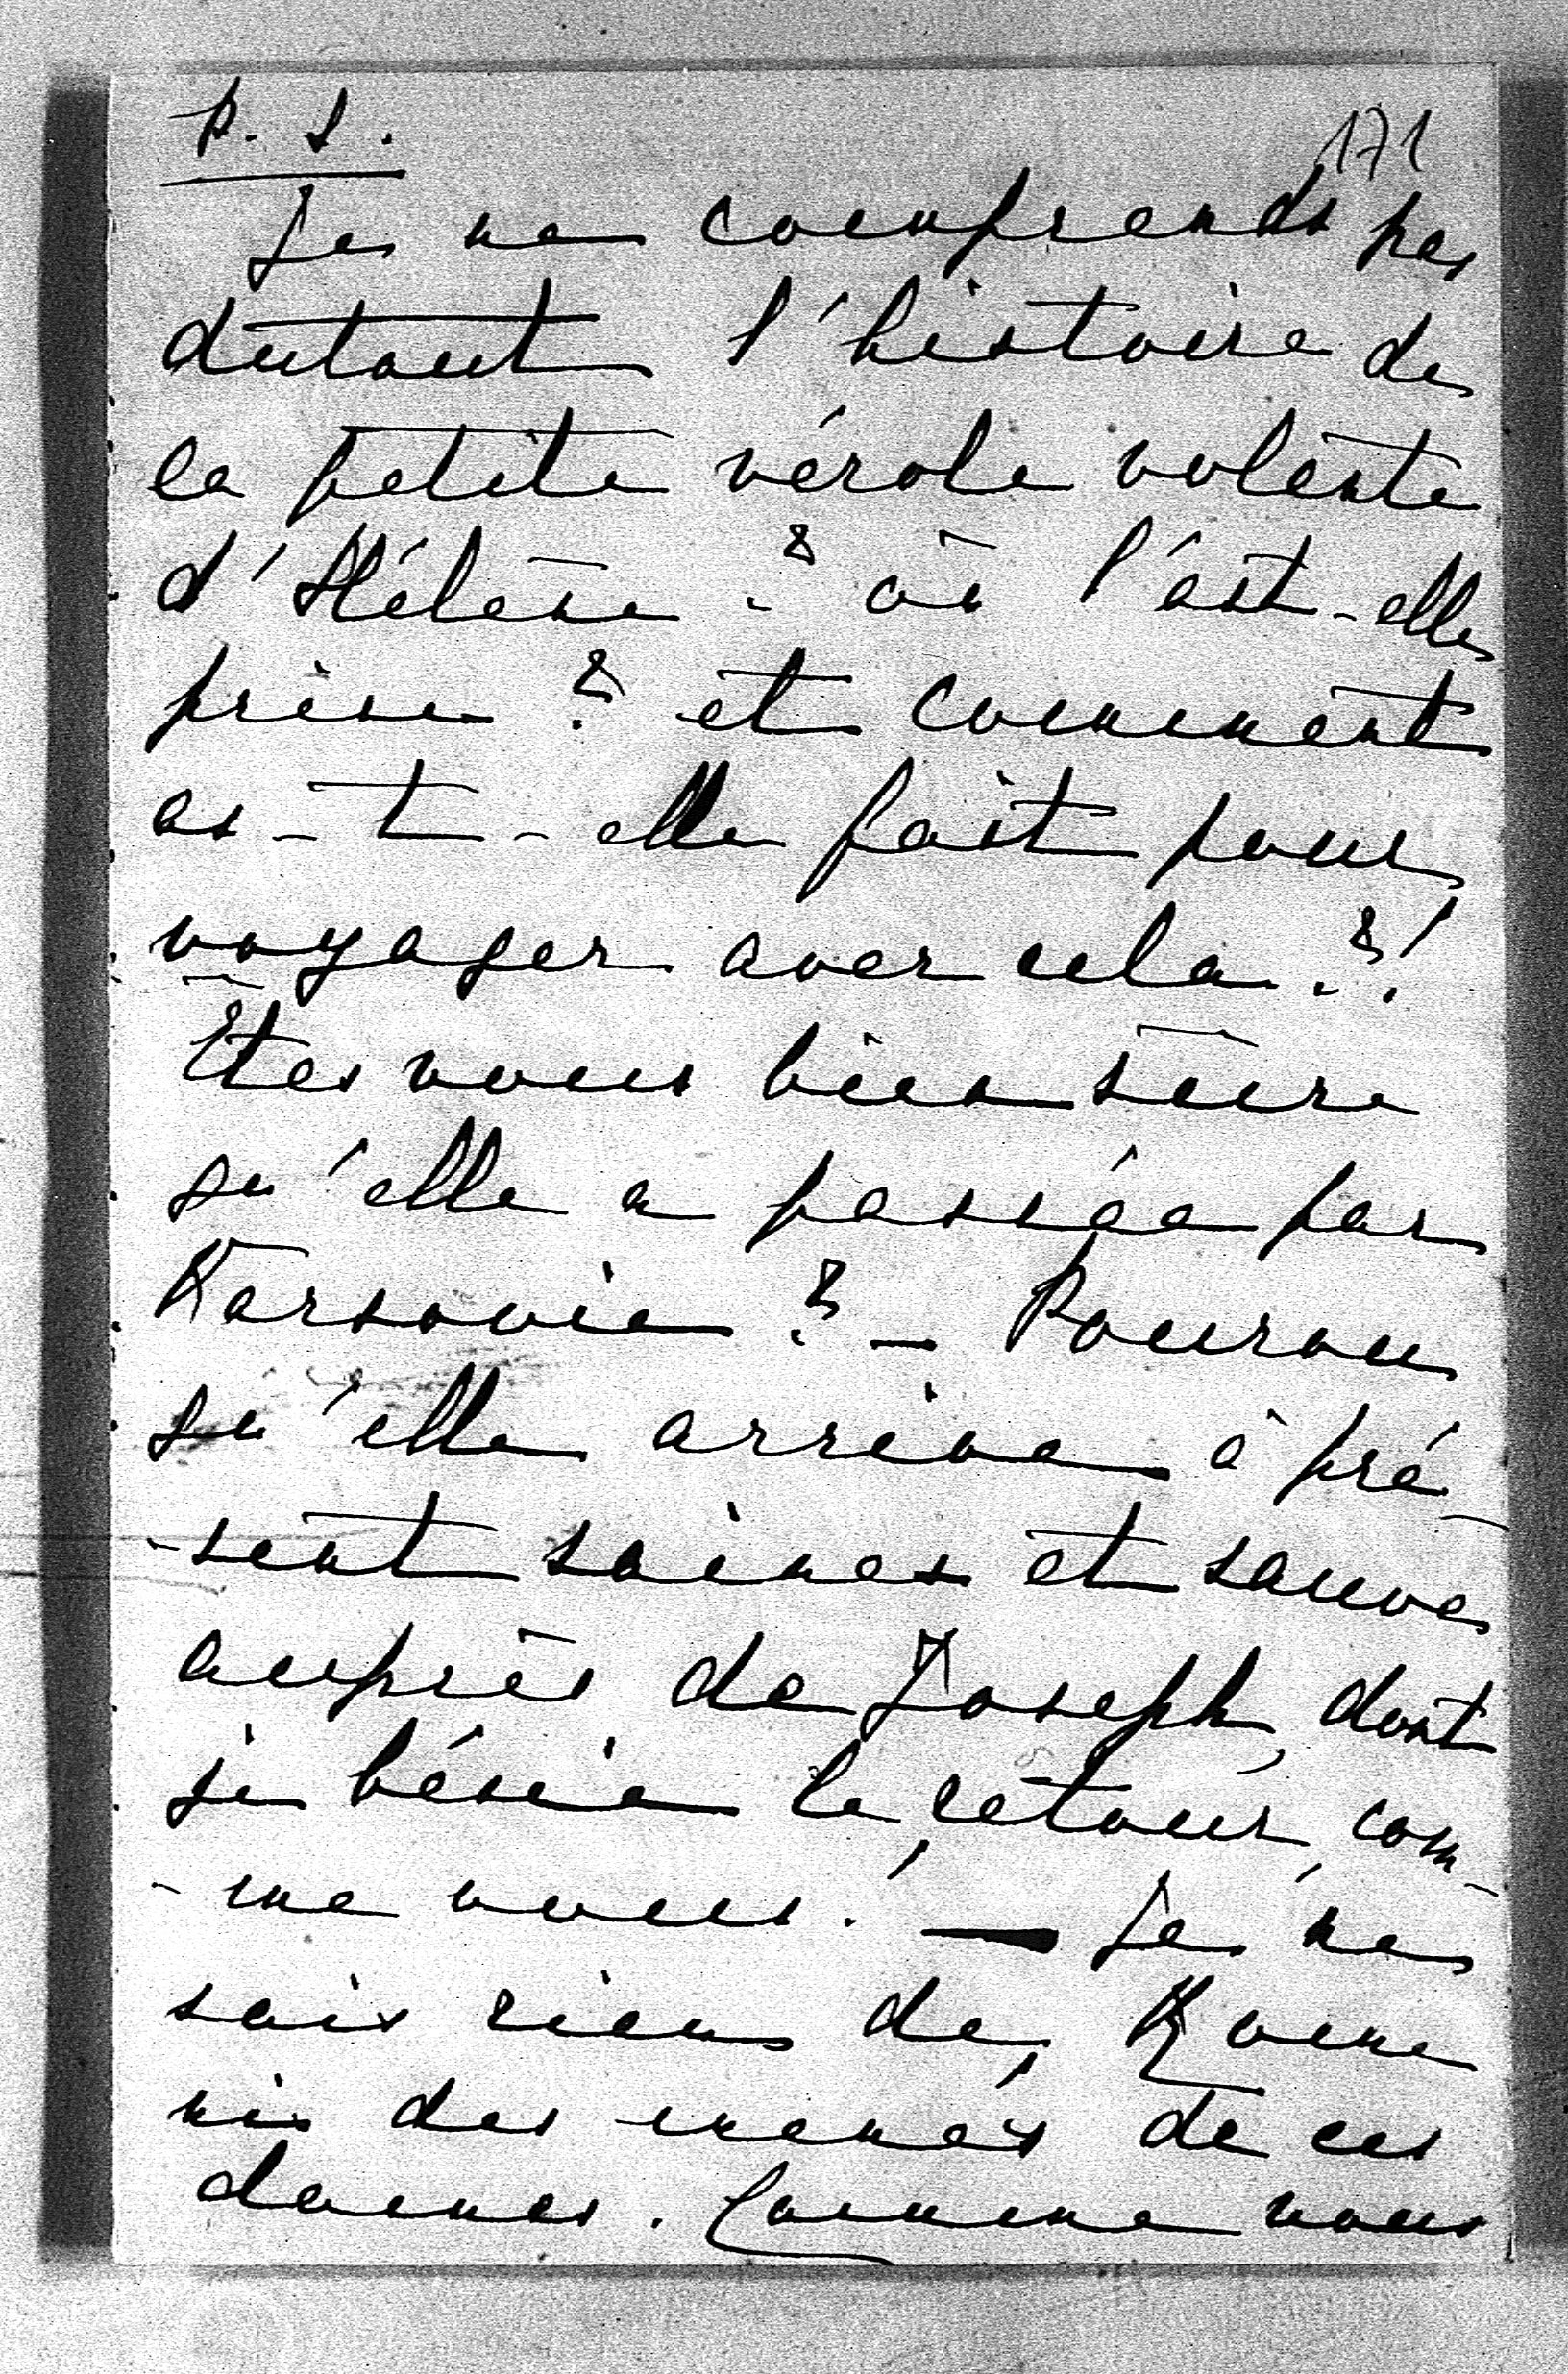 P. S.
171
Je ne comprends pas
dutout l'histoire de
la petite vérole volente
d'Hélène ? où l'ast-elle
prise ? et comment
as-t-elle fait pour
voyager avec cela ?!
Êtes vous bien sûre
qu'elle a passée par
Varsovie ? — Pourvu
qu'elle arrive à pré-
-sent saines et sauve
auprès de Joseph, dont
je bénie le retour, com-
-me vous. — Je ne
sais rien de Rome
ni des menés de ces
dames. Comme vous